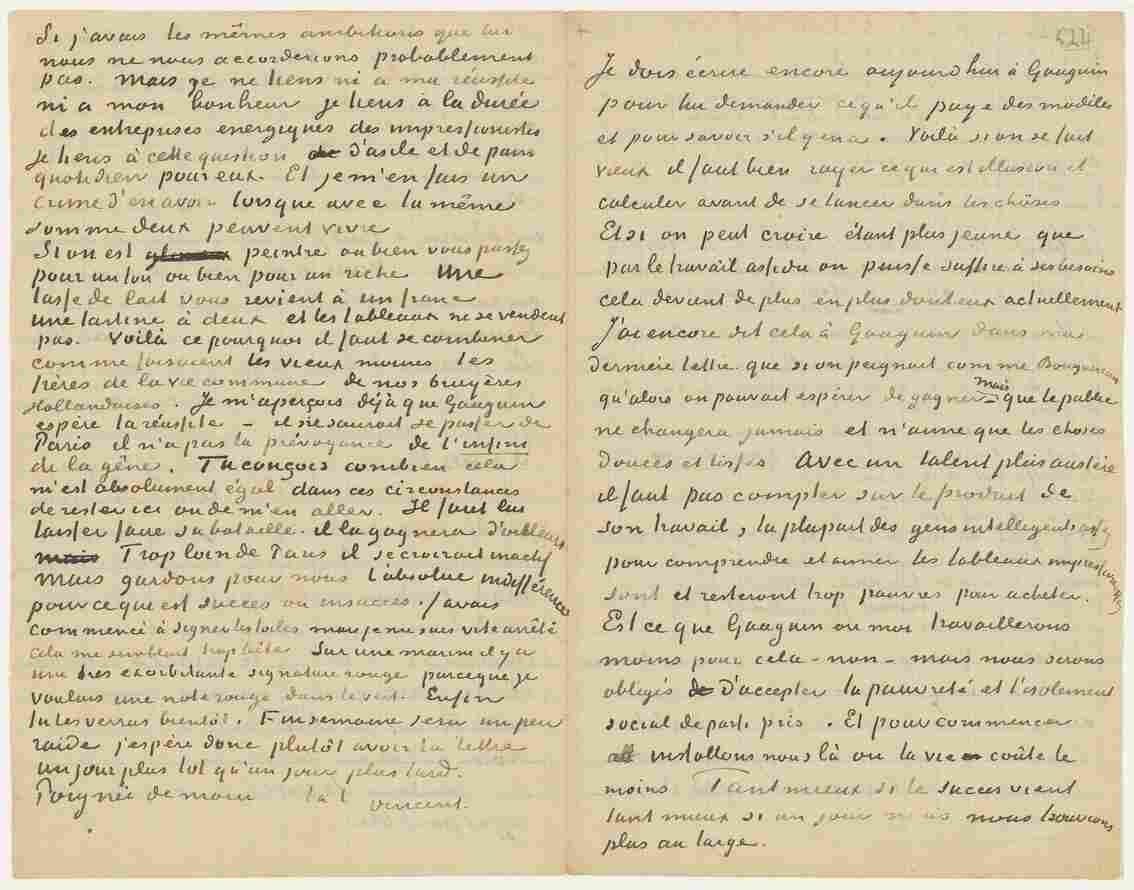 Si j'avais les mêmes ambitions que lui
nous ne nous accorderions probablement
pas. Mais je ne tiens ni a ma réussite
ni a mon bonheur je tiens à la durée
des entreprises energiques des impressionistes
je tiens à cette question de d'asile et de pain
quotidien pour eux. Et je m'en fais un
crime d'en avoir lorsque avec la même
somme deux peuvent vivre
Si on est peintre ou bien vous passez
pour un fou ou bien pour un riche une
tasse de lait vous revient à un franc
une tartine à deux et les tableaux ne se vendent
pas. Voilà ce pourquoi il faut se combiner
comme faisaient les vieux moines les
frères de la vie commune de nos bruyères
Hollandaises. Je m'aperçois déjà que Gauguin
espère la réussite – il ne saurait se passer de
Paris il n'a pas la prévoyance de l'infini
de la gêne. Tu conçois combien cela
m'est absolument égal dans ces circonstances
de rester ici ou de m'en aller. Il faut lui
laisser faire sa bataille. il la gagnera d'ailleurs
mais Trop loin de Paris il se croirait inactif
Mais gardons pour nous l'absolue indifférence
pour ce que est succès ou insuccès. j'avais
commencé à signer les toiles mais je me suis vite arrêté
cela me semblait trop bête. Sur une marine il y a
une très exorbitante signature rouge parceque je
voulais une note rouge dans le vert. Enfin
tu les verras bientôt. Fin semaine sera un peu
raide j'espère donc plutôt avoir ta lettre
un jour plus tot qu'un jour plus tard.
Poignée de main t. à t. Vincent.
524
Je dois écrire encore aujourd'hui à Gauguin
pour lui demander ce qu'il paye des modèles
et pour savoir s'il y en a. Voilà si on se fait
vieux il faut bien rayer ce que est illusoire et
calculer avant de se lancer dans les choses
Et si on peut croire étant plus jeune que
par le travail assidu on puisse suffire à ses besoins
cela devient de plus en plus douteux actuellement
J'ai encore dit cela à Gauguin dans ma
dernière lettre. que si on peignait comme Bouguereau
qu'alors on pouvait espérer de gagner – mais que le public
ne changera jamais et n'aime que les choses
douces et lisses Avec un talent plus austère
il faut pas compter sur le produit de
son travail, la plupart des gens intelligents assez
pour comprendre et aimer les tableaux impressionistes
sont et resteront trop pauvres pour acheter.
Est ce que Gauguin ou moi travaillerons
moins pour cela – non – mais nous serons
obligés de d'accepter la pauvreté et l'isolement
social de parti pris. Et pour commencer
installons nous là ou la vie coûte le
moins Tant mieux si le succès vient
tant mieux si un jour nous nous trouvions
plus au large.